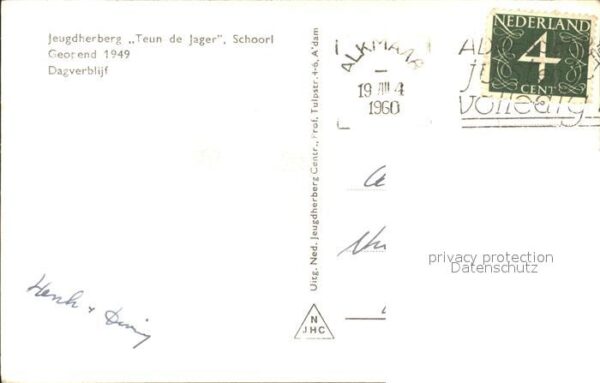 Jeugdherberg „Teun de Jager”, Schoorl
Geopend 1949
Dagverblijf
Uitg. Ned. Jeugdherberg Centr., Prof. Tulpstr. 4-6, A'dam
N
JHC
ALKMAAR
1960
volledig
NEDERLAND
4
CENT
privacy protection
Datenschutz
Henk +